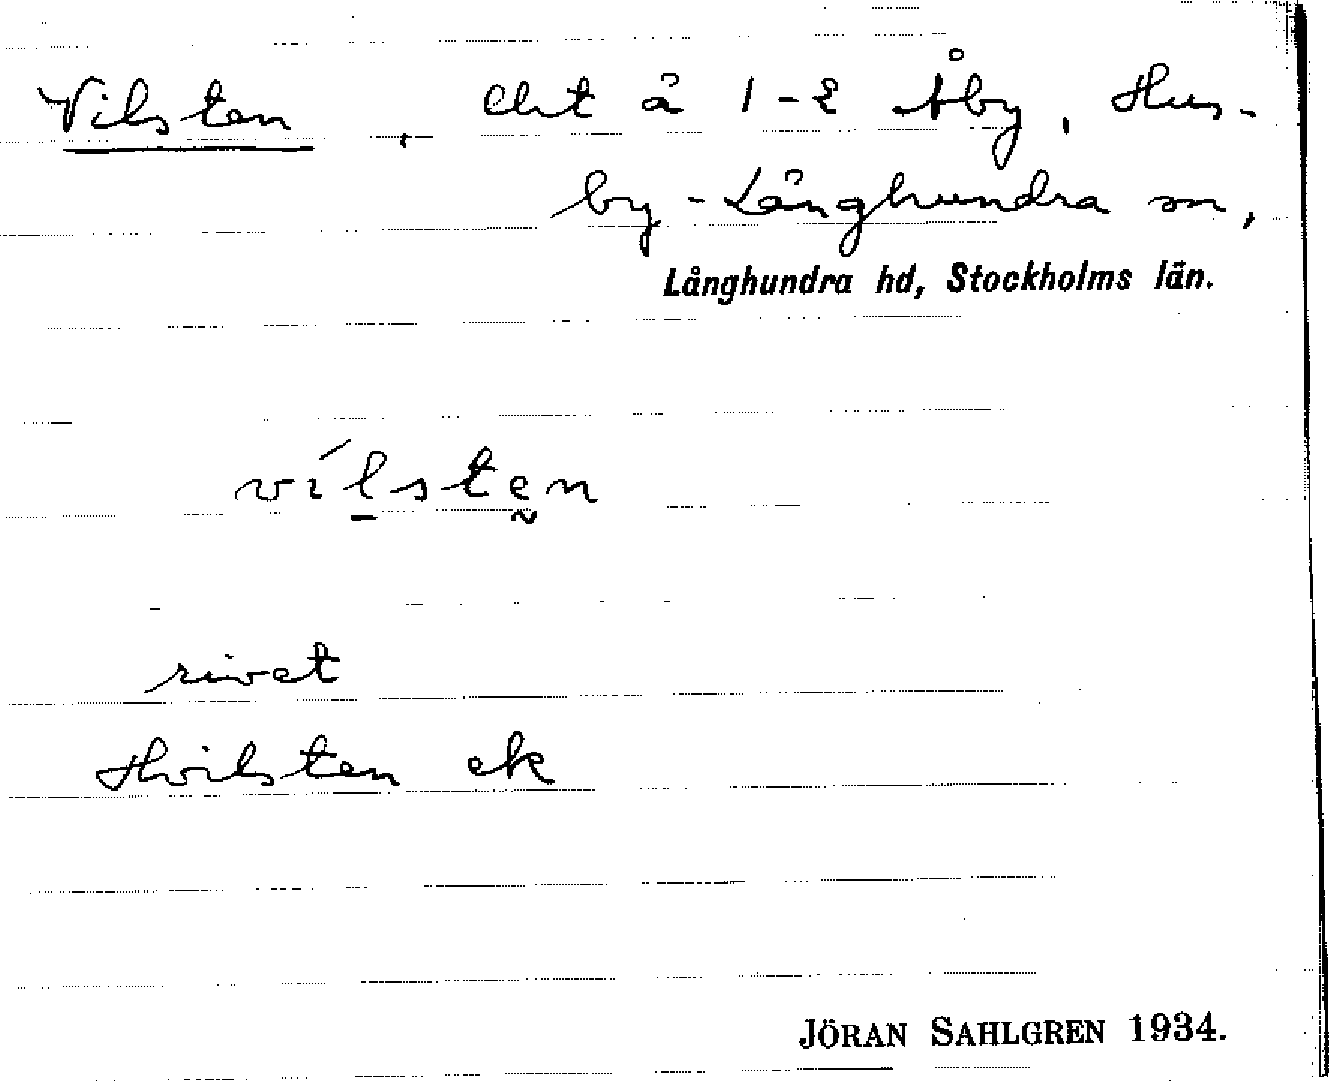 Vilsten, lht å 1-2 Åby, Hus-
by-Långhundra sn,
Långhundra hd, Stockholms län.
vílsten
rivet
Hvilsten ek
JÖRAN SAHLGREN 1934.